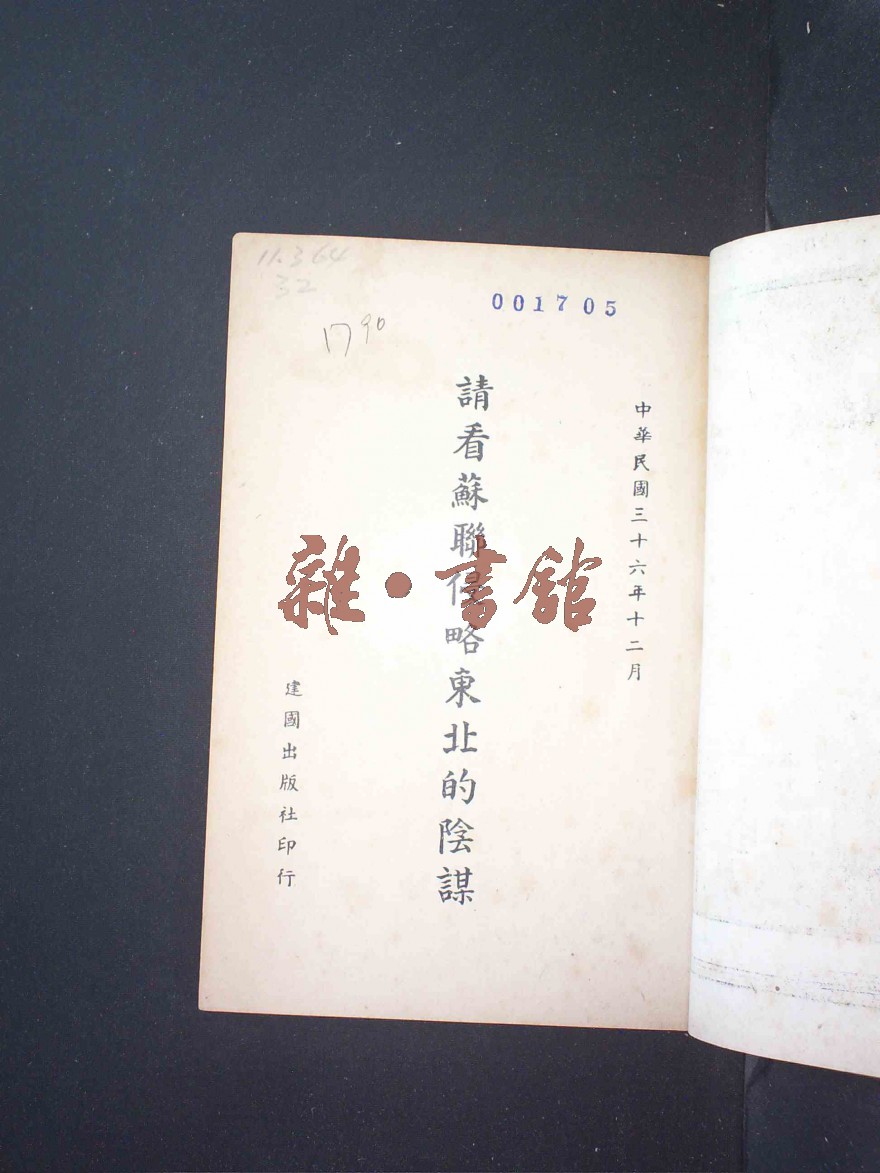 11.364
32
1790
001705
中華民國三十六年十二月
請看蘇聯侵略東北的陰謀
建國出版社印行
雜·書館